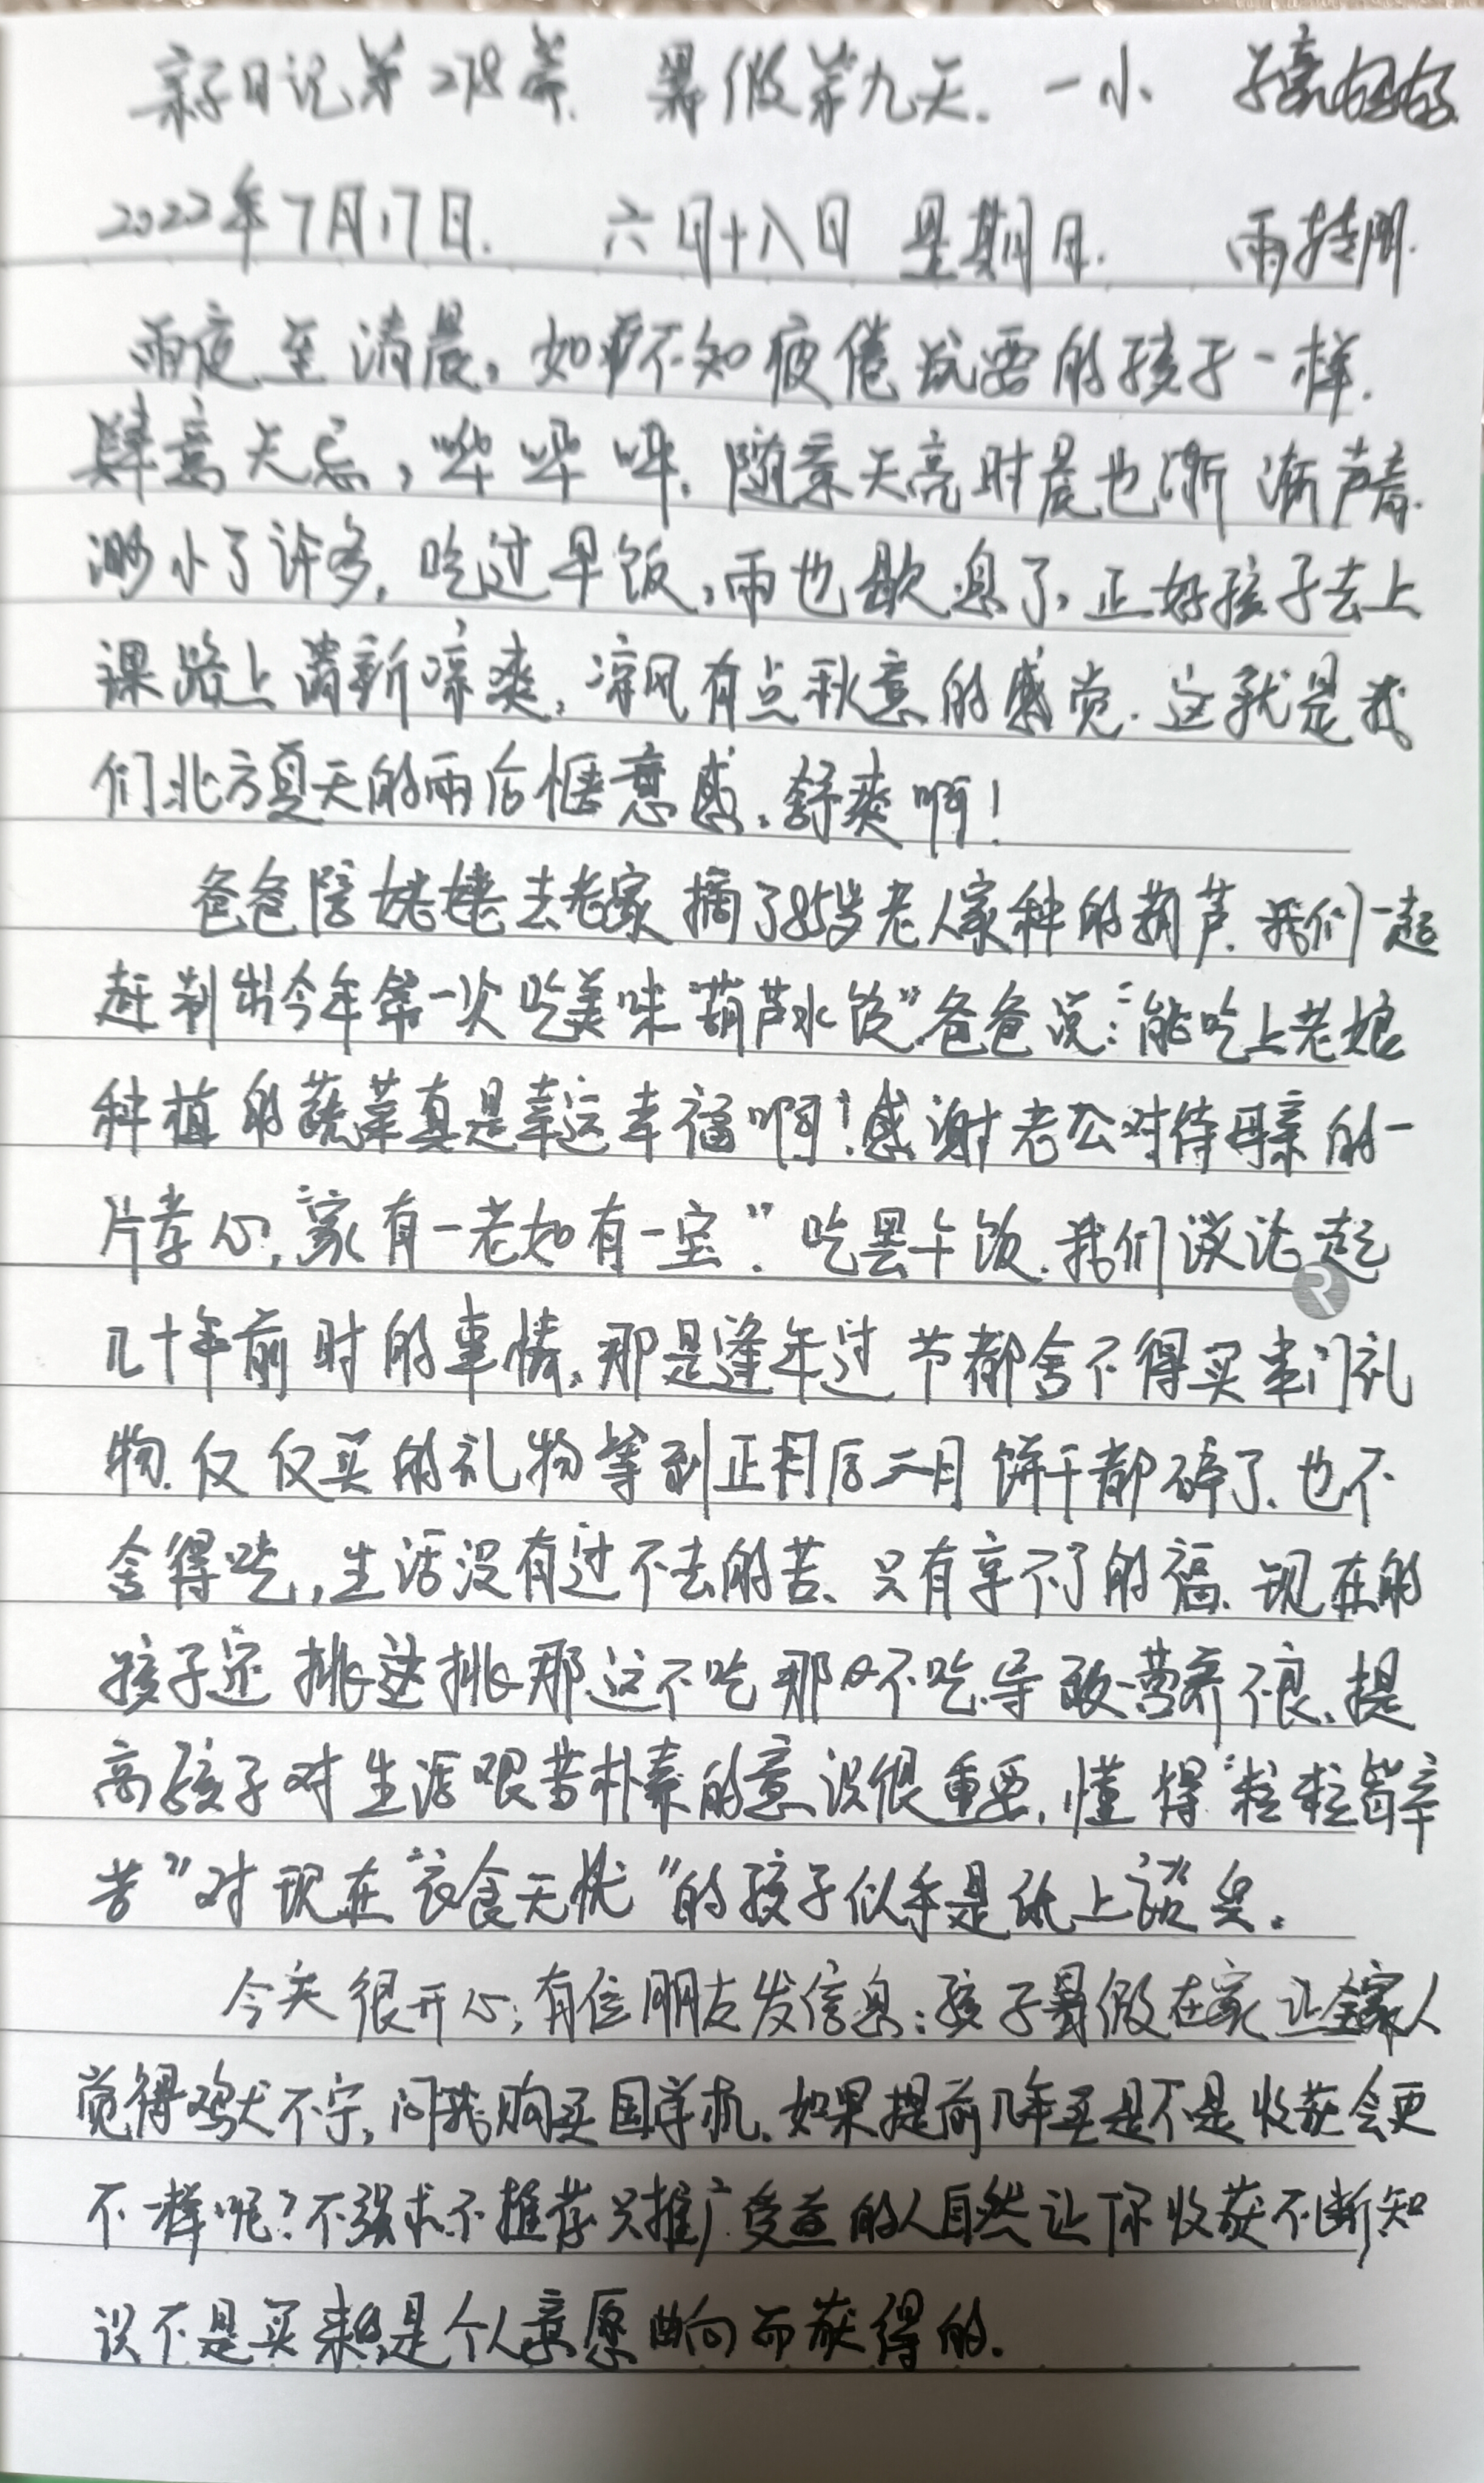 亲子日记第278篇. 暑假第九天. 一小
2022年7月17日. 六月十八日 星期日. 雨转阴.
雨夜至清晨,如那不知疲倦玩耍的孩子一样.
肆意无忌,哗哗哗.随意天亮时晨也渐渐声音.
渺小了许多,吃过早饭,雨也歇息了,正好孩子去上
课路上清新凉爽,凉风有点秋意的感觉.这就是我
们北方夏天的雨后惬意感,舒爽啊!
爸爸陪姥姥去老家摘了85岁老人家种的葫芦.我们一起
赶制出今年第一次吃美味“葫芦水饺”.爸爸说:“能吃上老娘
种植的蔬菜真是幸运幸福啊!感谢老公对待母亲的一
片孝心,“家有一老如有一宝”.吃罢午饭.我们谈论起
几十年前时的事情,那是逢年过节都舍不得买串门礼
物.仅仅买的礼物等到正月后二月饼干都碎了.也不
舍得吃,生活没有过不去的苦、只有享不了的福.现在的
孩子还挑这挑那这不吃那不吃.导致营养不良、提
高孩子对生活艰苦朴素的意识很重要,懂得“粒粒皆辛
苦”对现在“衣食无忧”的孩子似乎是纸上谈兵.
今天很开心;有位朋友发信息:孩子暑假在家让全家人
觉得鸡犬不宁,问我购买国学机.如果提前几年买是不是收获会更
不一样呢?不强求不推荐只推广.受益的人自然让你收获不断知
识不是买来的,是个人意愿曲向而获得的.